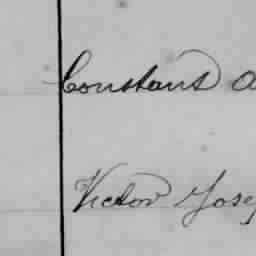 Constans A
Victor Josep